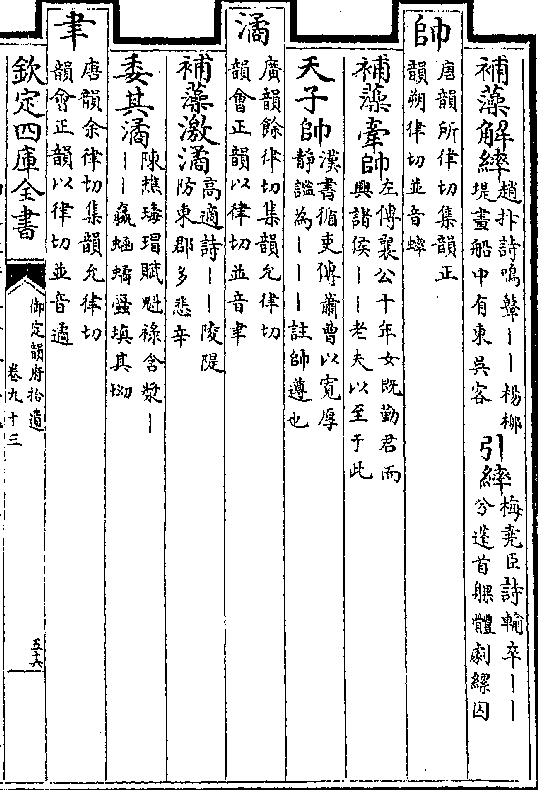 補藻解縴趙抃詩鳴鼙丨丨楊柳
堤畫船中有東吳客
引縴梅堯臣詩輸卒丨丨
兮蓬首躶體劇縲囚
帥
唐韻所律切集韻正
韻朔律切並音蟀
補藻牽帥左傳襄公十年女既勤君而
興諸侯丨丨老夫以至于此
天子帥漢書循吏傳蕭曹以寛厚
靜謐為丨丨丨註帥遵也
潏
廣韻餘律切集韻允律切
韻會正韻以律切並音聿
補藻激潏高適詩丨丨陵隄
防東郡多悲辛
委其潏陳燕瑇瑁賦魁祿含漿丨
丨丨蠃蛔蠯蠶填其㘭
聿
唐韻余律切集韻允律切
韻會正韻以律切並音遹
欽定四庫全書
御定韻府拾遺
卷九十三
五十六